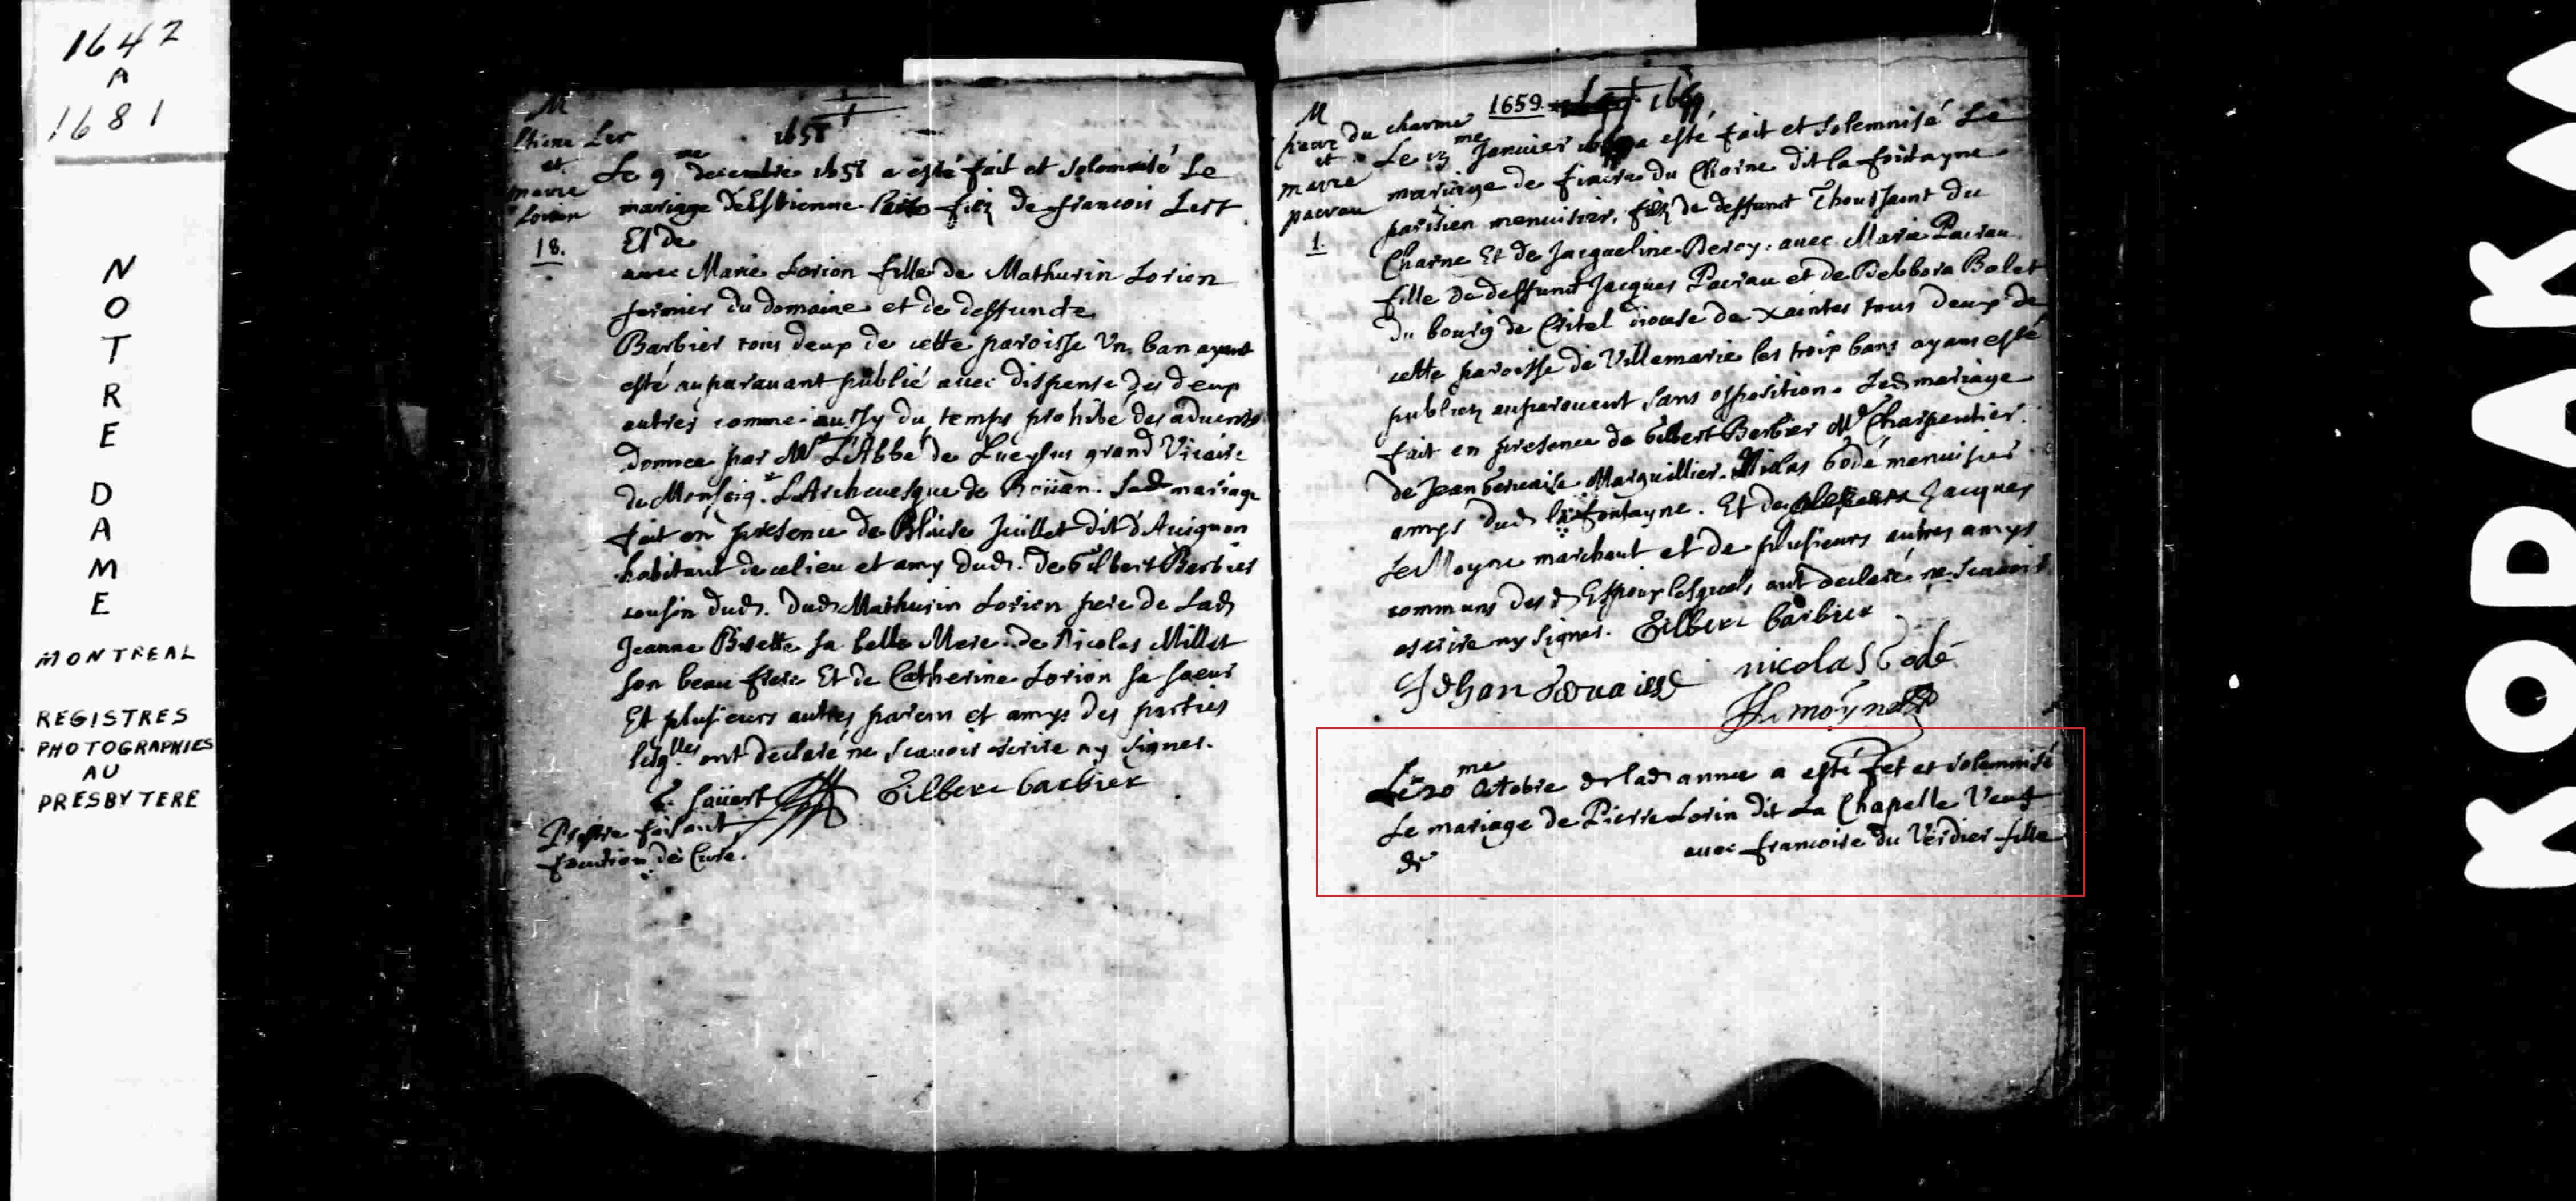 1642
A
1681
NOTRE DAME
MONTREAL
REGISTRES
PHOTOGRAPHIES
AU
PRESBYTERE
M
et
marie
Lorion
18.
1658
Le 9me decembre 1658 a esté fait et solemnisé Le
mariage De Estienne filz De francois Lert
Et de
avec Marie Lorion fille de Mathurin Lorion
fermier du domaine et de deffuncte
Barbier tous deux de cette paroisse Un ban ayant
esté auparauant publié auec dispense des deux
autres comme aussy du temps prohibé des aduents
donnee par Mr L'Abbé de Queylus grand Vicaire
de Monseigr L'Archeuesque de Roüan. Led mariage
fait en presence de Blaise Juillet dit d'Auignon
habitant de ce lieu et amy dud. De Gilbert Barbier
cousin dud. Dud Mathurin Lorion pere de Lad
Jeanne Bisette sa belle Mere. de Nicolas Millet
son beau frere Et de Catherine Lorion sa soeur
Et plusieurs autres parens et amys des parties
lesqlles ont declaré ne scauoir escrire ny signer.
Gilbert barbier
Prestre faisant
fonction de Cure.
M
du charme
et
marie
pacrau
1.
1659.
Le Janvier a esté fait et solemnisé Le
mariage de fiacre du Charne dit la fontayne
parisien menuisier, filz de deffunct Thoussaint du
Charne Et de Jacqueline Bercy. avec Marie Pacrau
fille de deffunct Jacques Pacrau et de Debbora Bolet
Du bourg de Critel diocese de Xaintes tous deux de
cette paroisse de Villemarie les trois bans ayans esté
publiez auparauant sans opposition. Led mariage
fait en presence de Gilbert Barbier Me Charpentier.
De Jean Gervaise Marguillier. Nicolas Godé menuisier
amys dud la fontayne. Et de Jacques
Le Moyne marchant et de plusieurs autres amys
communs des d Espoux lesquels ont declaré ne scauoir
escrire ny signer. Gilbert barbier
Jehan Gervaise nicolas Godé
Lemoyne
Le 20me Octobre de lad annee a esté fet et solemnisé
Le mariage de Pierre Lorin dit La Chapelle Veuf
de auec francoise du Verdier fille
KODAK